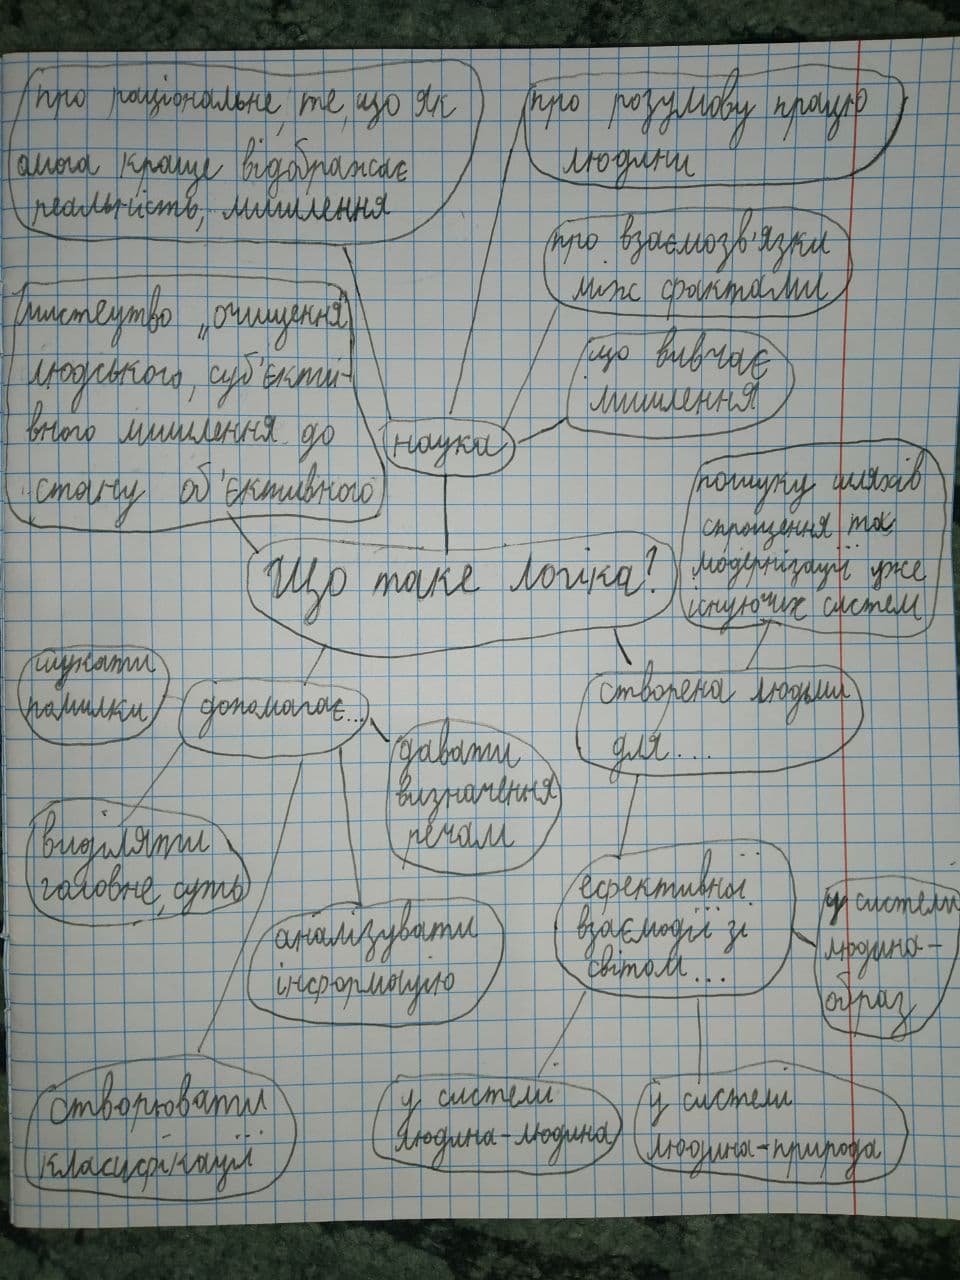 про раціональне, те, що як
омога краще відображає
реальність, мишлення
про розумову працю
людини
про взаємозв'язки
між фактами
що вивчає
мишлення
наука
мистецтво „очищення
людського, суб'єкти-
вного мишлення до
стану об'єктивного
Що таке логіка?
пошуку шляхів
спрощення та
модернізації уже
існуючих систем
шукати
помилки
допомагає...
створена людьми
для...
давати
визначення
речам
виділяти
головне, суть
аналізувати
інформацію
ефективної
взаємодії зі
світом...
у системі
людина-
образ
створювати
класифікації
у системі
людина-людина
у системі
людина-природа